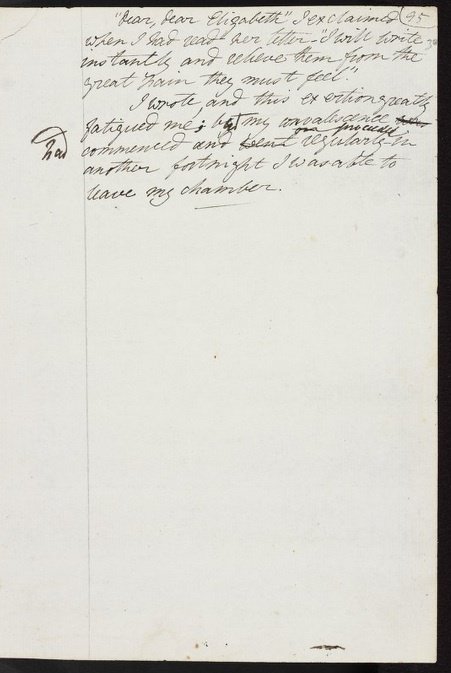 "Dear, dear Elizabeth" I exclaimed (95
when I had read her letter "I will write
instantly and relieve them from the
great pain they must feel."
I wrote and this exertion greatly
fatigued me; but my convalescence
had
on proceeded
commenced and went regularly in
another fortnight I was able to
leave my chamber.